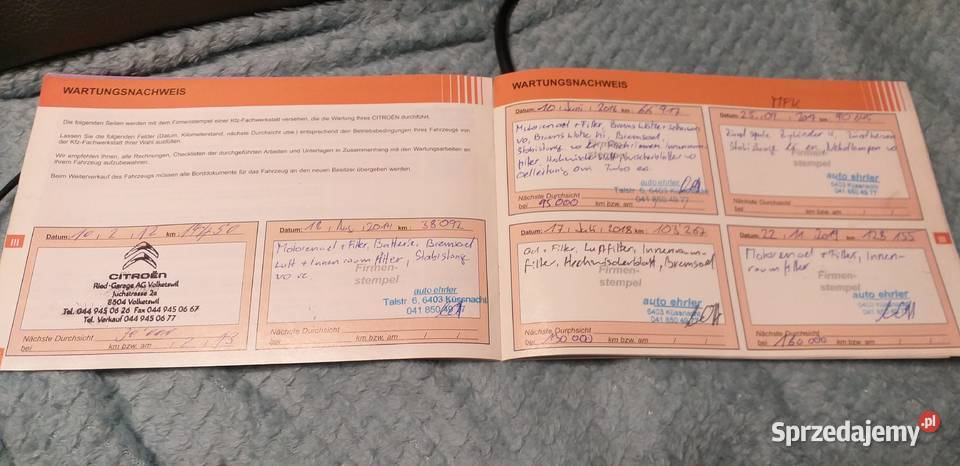 WARTUNGSNACHWEIS
Die folgenden Seiten werden mit dem Firmenstempel einer Kfz-Fachwerkstatt versehen, die die Wartung Ihres CITROËN durchführt.
Lassen Sie die folgenden Felder (Datum, Kilometerstand, nächste Durchsicht usw.) entsprechend den Betriebsbedingungen Ihres Fahrzeugs von
der Kfz-Fachwerkstatt Ihrer Wahl ausfüllen.
Wir empfehlen Ihnen, alle Rechnungen, Checklisten der durchgeführten Arbeiten und Unterlagen in Zusammenhang mit den Wartungsarbeiten an
Ihrem Fahrzeug aufzubewahren.
Beim Weiterverkauf des Fahrzeugs müssen alle Borddokumente für das Fahrzeug an den neuen Besitzer übergeben werden.
III
Datum: 10 / 2 / 12 km
CITROËN
Ried-Garage AG Volketswil
Juchstrasse 2a
8604 Volketswil
Tel. 044 945 06 26 Fax 044 945 06 67
Tel. Verkauf 044 945 06 77
Nächste Durchsicht
bei km bzw. am / 2 / 13
Datum: 18 / Aug / 2014 km: 38 092
Motorenoel + Filter, Batterie, Bremsoel
Luft + Innenraumfilter, Stabistange
vo re
Firmen-
stempel
auto ehrler
Talstr. 6, 6403 Küssnacht
041 850 49 77
Nächste Durchsicht
bei km bzw. am / /
WARTUNGSNACHWEIS
Datum: 10 / Juni / 2016 km: 66 917
Motorenoel + Filter, Brems
vo, hi, Bremsoel,
Stabistang vo
filter, vo
Oelleitung am Turbo er.
auto ehrler
Talstr. 6, 6403 Küssnacht
041 850 49 77
Nächste Durchsicht
bei 95 000
MFK
Datum: 25 / 01 / km 90
Zündspule Zylinder
Stabistang er
Firmen-
stempel
auto ehrler
6403 Küssnacht
041 850 49 77
Nächste Durchsicht
bei km bzw. am / /
Datum: 17 / Juli / 2018 km: 103 267
Oel + Filter, Luftfilter, Innenraum-
filter, Heckwischerblatt, Bremsoel
Firmen-
stempel
auto ehrler
6403 Küssnacht
041 850 49 77
Nächste Durchsicht
bei 130 000 km bzw. am / /
Datum: 22 / 11 / 2019 km 128 155
Motorenoel + Filter, Innen-
raumfilter
Firmen-
stempel
auto ehrler
6403 Küssnacht
041 850 49 77
Nächste Durchsicht
bei 160 000 km bzw. am / /
III
Sprzedajemy.pl